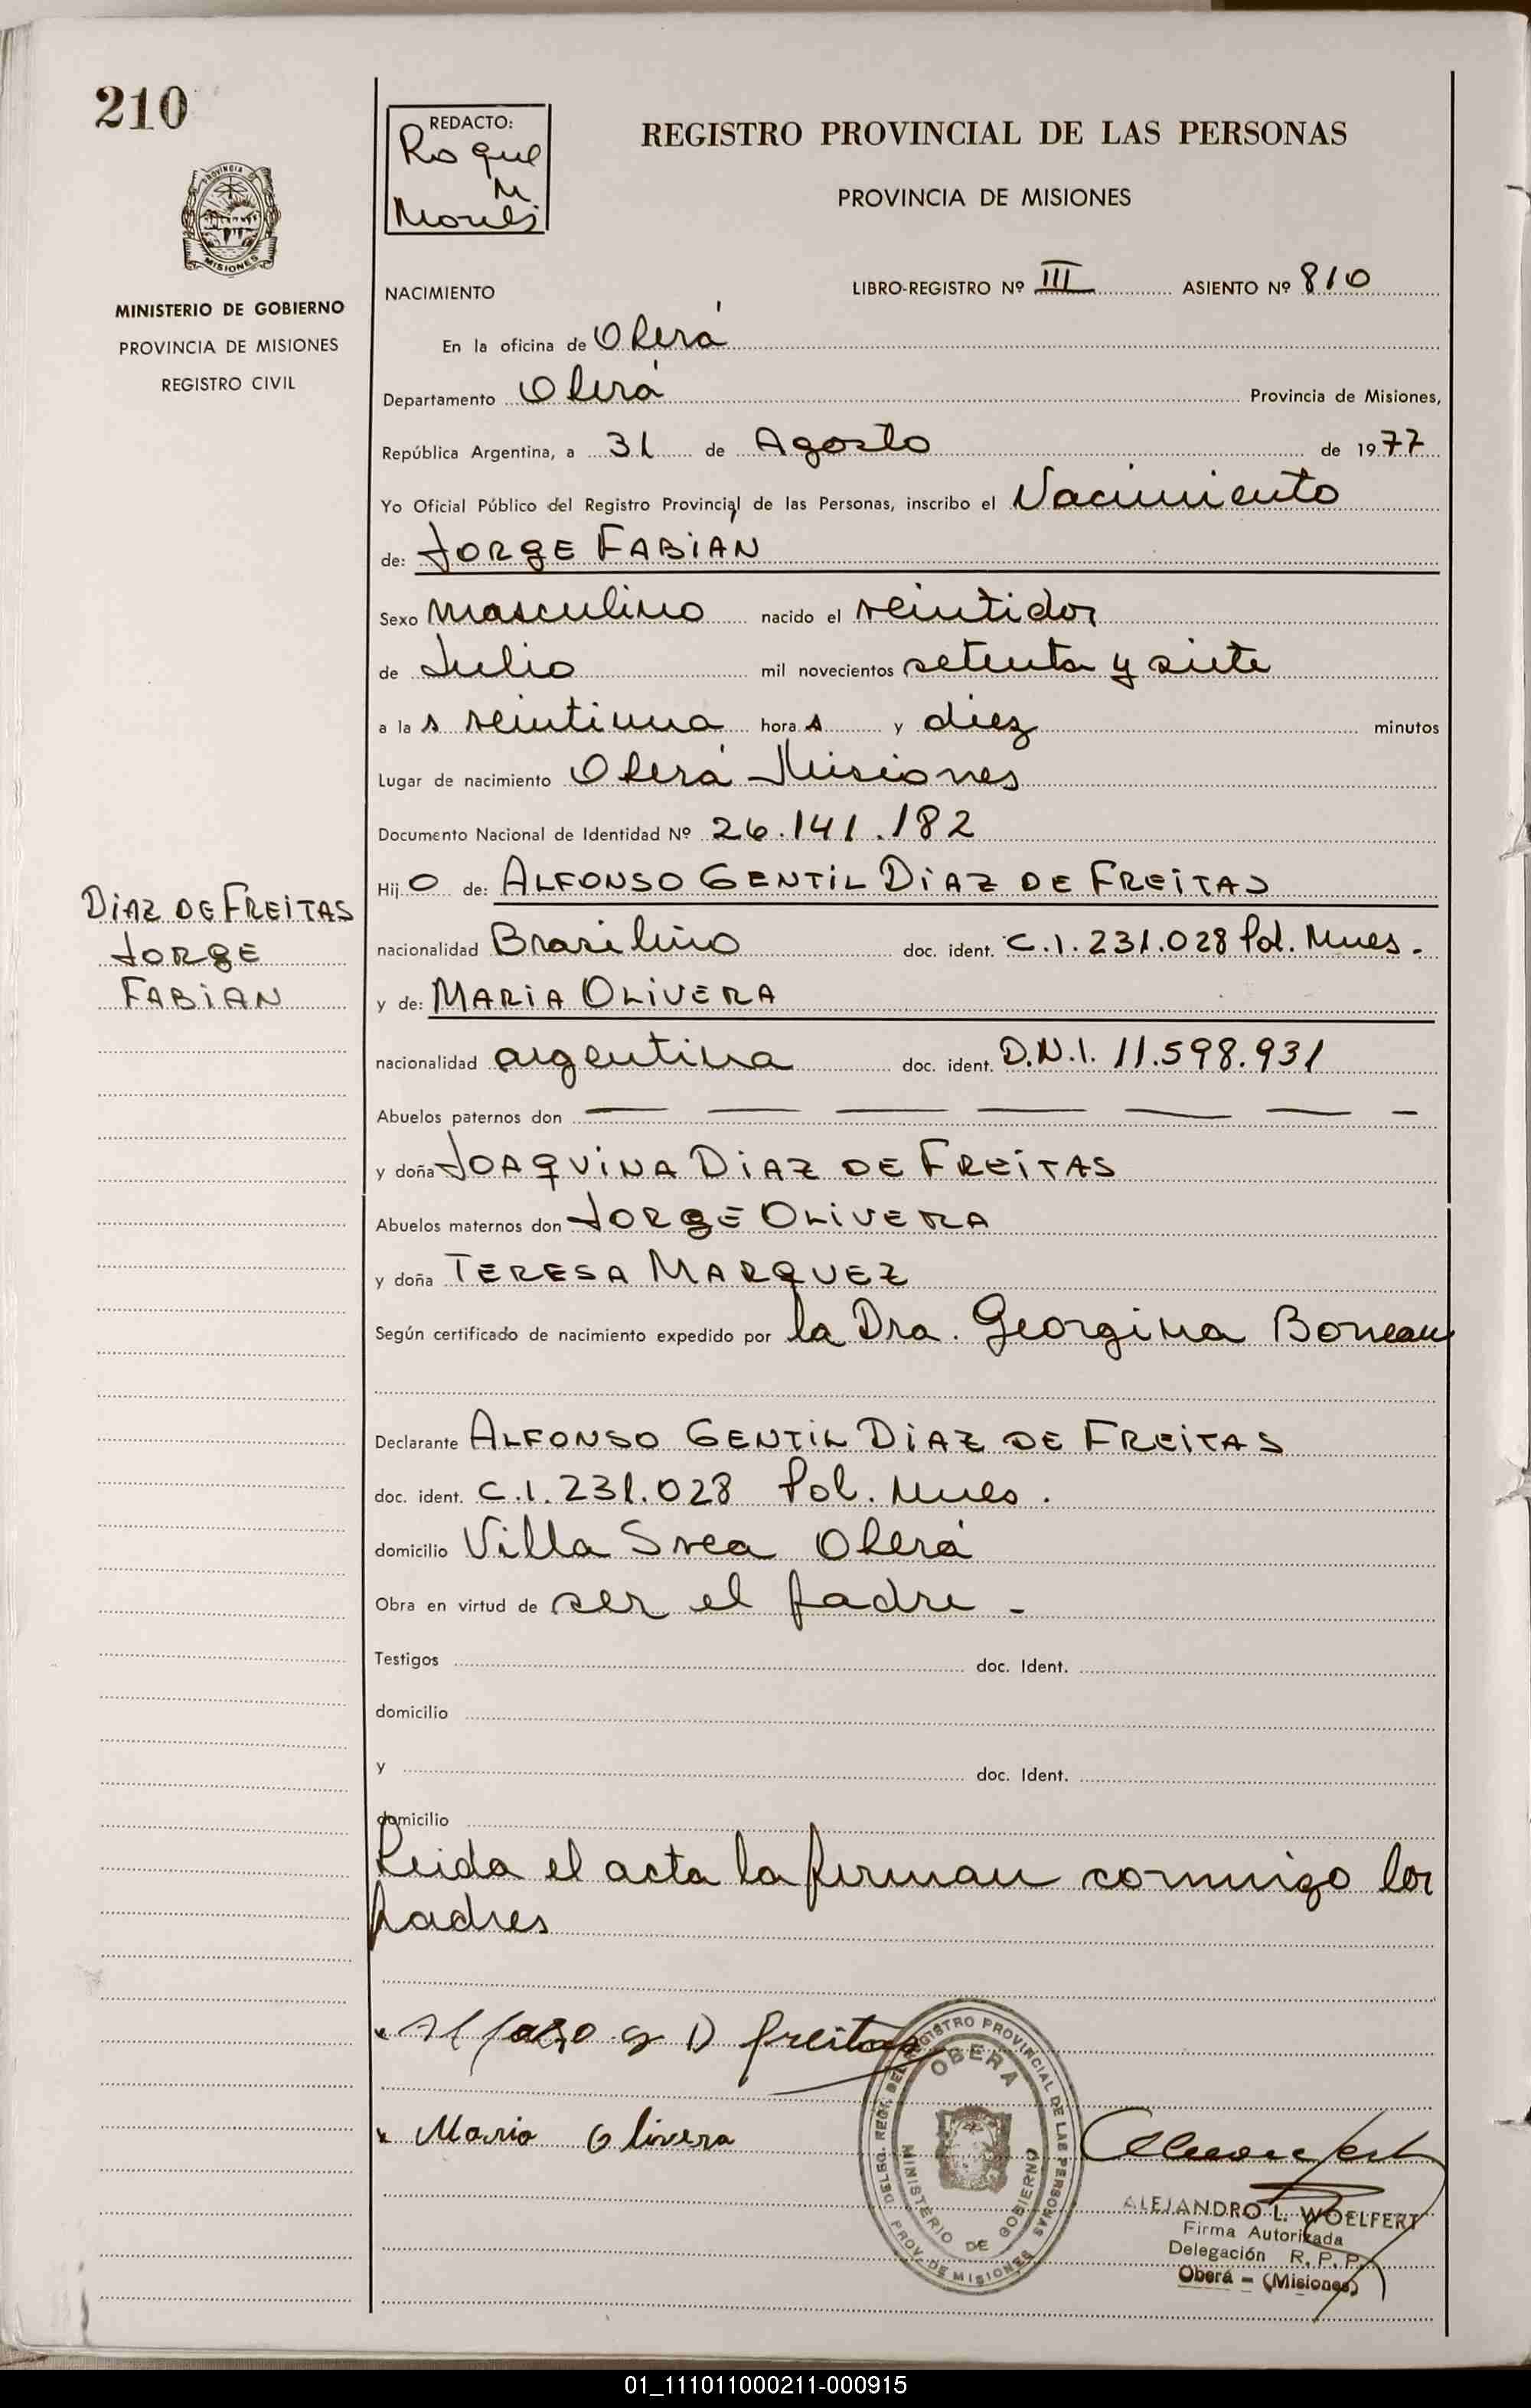 210
REDACTO:
Roque
M
REGISTRO PROVINCIAL DE LAS PERSONAS
PROVINCIA DE MISIONES
PROVINCIA DE
MISIONES
MINISTERIO DE GOBIERNO
PROVINCIA DE MISIONES
REGISTRO CIVIL
NACIMIENTO LIBRO-REGISTRO Nº III ASIENTO Nº 810
En la oficina de Oberá
Departamento Oberá Provincia de Misiones,
República Argentina, a 31 de Agosto de 1977
Yo Oficial Público del Registro Provincial de las Personas, inscribo el Nacimiento
de: JORGE FABIAN
Sexo masculino nacido el veintidos
de Julio mil novecientos setenta y siete
a las veintiuna horas y diez minutos
Lugar de nacimiento Oberá Misiones
Documento Nacional de Identidad Nº 26.141.182
Hijo de: ALFONSO GENTIL DIAZ DE FREITAS
DIAZ DE FREITAS
JORGE
FABIAN
nacionalidad Brasileño doc. ident. C.I. 231.028 Pol. Mnes.
y de: MARIA OLIVERA
nacionalidad argentina doc. ident. D.N.I. 11.598.931
Abuelos paternos don — — — — — — -
y doña JOAQUINA DIAZ DE FREITAS
Abuelos maternos don JORGE OLIVERA
y doña TERESA MARQUEZ
Según certificado de nacimiento expedido por la Dra. Georgina Bonneau
Declarante ALFONSO GENTIL DIAZ DE FREITAS
doc. ident. C.I. 231.028 Pol. Mnes.
domicilio Villa Svea Oberá
Obra en virtud de ser el padre -
Testigos doc. Ident.
domicilio
y doc. Ident.
domicilio
Leida el acta la firman conmigo los
padres
Alfonso G D freitas
Maria Olivera
DELEG. REGN. DEL REGISTRO PROVINCIAL DE LAS PERSONAS
OBERA
MINISTERIO DE GOBIERNO
PROV. DE MISIONES
ALEJANDRO L. WOELFERT
Firma Autorizada
Delegación R. P. P.
Oberá - (Misiones)
01_111011000211-000915